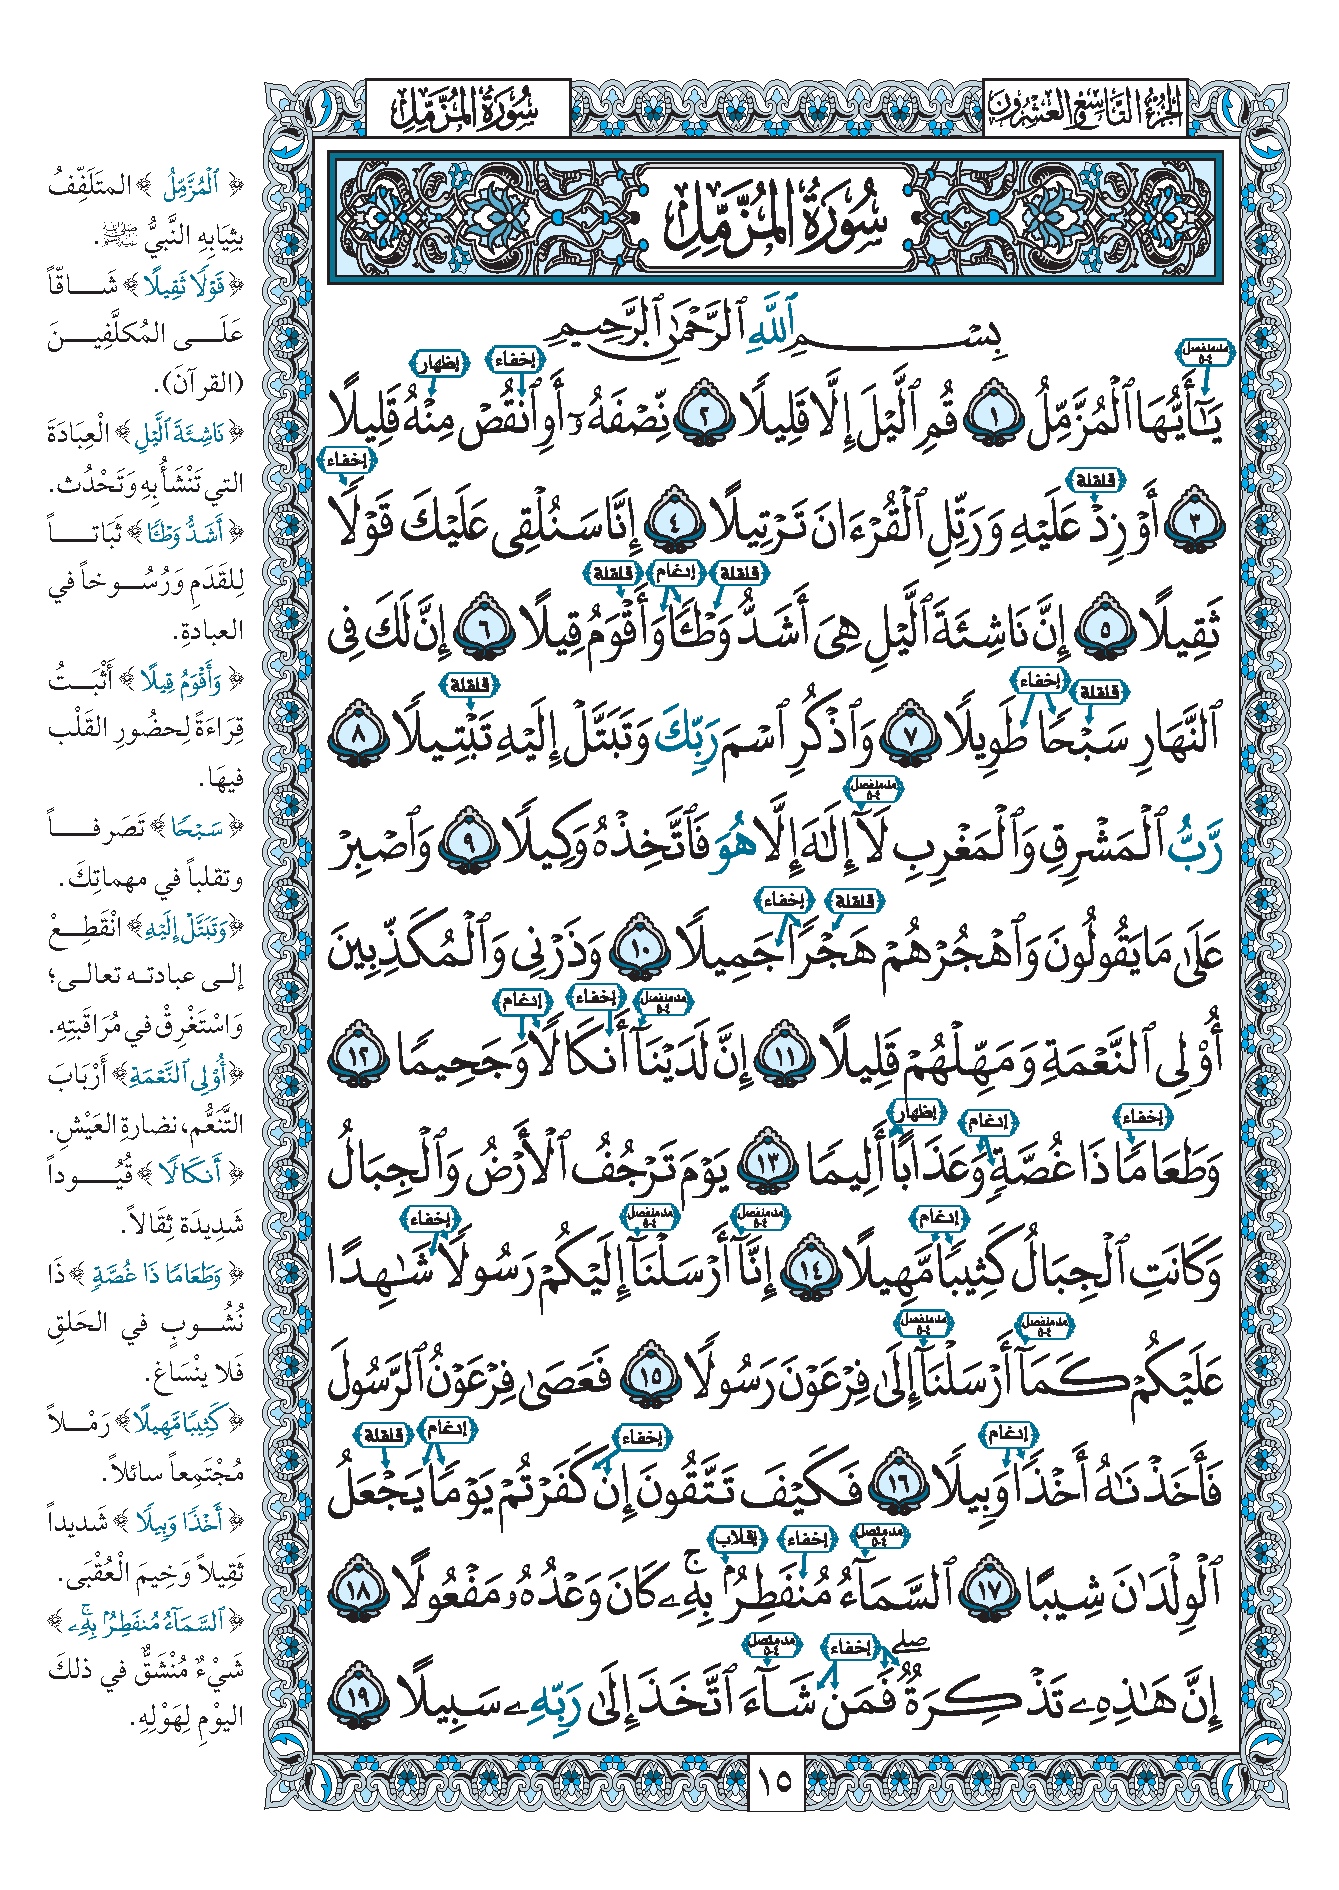 الجزء التاسع والعشرون
سورة المزمل
سُورَةُ المُزَّمِّلِ
بِسْمِ ٱللَّهِ ٱلرَّحْمَٰنِ ٱلرَّحِيمِ
مد منفصل ٤-٥
إخفاء
إظهار
يَٰٓأَيُّهَا ٱلْمُزَّمِّلُ ١ قُمِ ٱلَّيْلَ إِلَّا قَلِيلًا ٢ نِّصْفَهُۥٓ أَوِ ٱنقُصْ مِنْهُ قَلِيلًا
قلقلة
إخفاء
٣ أَوْ زِدْ عَلَيْهِ وَرَتِّلِ ٱلْقُرْءَانَ تَرْتِيلًا ٤ إِنَّا سَنُلْقِى عَلَيْكَ قَوْلًا
قلقلة
إدغام
قلقلة
ثَقِيلًا ٥ إِنَّ نَاشِئَةَ ٱلَّيْلِ هِىَ أَشَدُّ وَطْـًٔا وَأَقْوَمُ قِيلًا ٦ إِنَّ لَكَ فِى
قلقلة
إخفاء
قلقلة
ٱلنَّهَارِ سَبْحًا طَوِيلًا ٧ وَٱذْكُرِ ٱسْمَ رَبِّكَ وَتَبَتَّلْ إِلَيْهِ تَبْتِيلًا ٨
مد منفصل ٤-٥
رَّبُّ ٱلْمَشْرِقِ وَٱلْمَغْرِبِ لَآ إِلَٰهَ إِلَّا هُوَ فَٱتَّخِذْهُ وَكِيلًا ٩ وَٱصْبِرْ
قلقلة
إخفاء
عَلَىٰ مَا يَقُولُونَ وَٱهْجُرْهُمْ هَجْرًا جَمِيلًا ١٠ وَذَرْنِى وَٱلْمُكَذِّبِينَ
مد منفصل ٤-٥
إخفاء
إدغام
أُو۟لِى ٱلنَّعْمَةِ وَمَهِّلْهُمْ قَلِيلًا ١١ إِنَّ لَدَيْنَآ أَنكَالًا وَجَحِيمًا ١٢
إخفاء
إدغام
إظهار
وَطَعَامًا ذَا غُصَّةٍ وَعَذَابًا أَلِيمًا ١٣ يَوْمَ تَرْجُفُ ٱلْأَرْضُ وَٱلْجِبَالُ
إدغام
مد منفصل ٤-٥
مد منفصل ٤-٥
إخفاء
وَكَانَتِ ٱلْجِبَالُ كَثِيبًا مَّهِيلًا ١٤ إِنَّآ أَرْسَلْنَآ إِلَيْكُمْ رَسُولًا شَٰهِدًا
مد منفصل ٤-٥
مد منفصل ٤-٥
عَلَيْكُمْ كَمَآ أَرْسَلْنَآ إِلَىٰ فِرْعَوْنَ رَسُولًا ١٥ فَعَصَىٰ فِرْعَوْنُ ٱلرَّسُولَ
إدغام
إخفاء
إدغام
قلقلة
فَأَخَذْنَٰهُ أَخْذًا وَبِيلًا ١٦ فَكَيْفَ تَتَّقُونَ إِن كَفَرْتُمْ يَوْمًا يَجْعَلُ
مد متصل ٤-٥
إخفاء
إقلاب
ٱلْوِلْدَٰنَ شِيبًا ١٧ ٱلسَّمَآءُ مُنفَطِرٌۢ بِهِۦ ۚ كَانَ وَعْدُهُۥ مَفْعُولًا ١٨
إخفاء
مد متصل ٤-٥
إِنَّ هَٰذِهِۦ تَذْكِرَةٌ ۖ فَمَن شَآءَ ٱتَّخَذَ إِلَىٰ رَبِّهِۦ سَبِيلًا ١٩
١٥
﴿ٱلْمُزَّمِّلُ﴾ المتَلَفِّفُ
بِثِيَابِهِ النَّبيُّ ﷺ.
﴿قَوْلًا ثَقِيلًا﴾ شَاقّاً
عَلَى المُكلَّفِينَ
(القرآنَ).
﴿نَاشِئَةَ ٱلَّيْلِ﴾ الْعِبَادَةَ
التي تَنْشَأُ بِهِ وَتَحْدُث.
﴿أَشَدُّ وَطْـًٔا﴾ ثَبَاتاً
لِلقَدَمِ وَرُسُوخاً في
العبادةِ.
﴿وَأَقْوَمُ قِيلًا﴾ أَثْبَتُ
قِرَاءَةً لِحضُورِ القَلْبِ
فيهَا.
﴿سَبْحًا﴾ تَصَرفاً
وتقلباً في مهماتِكَ.
﴿وَتَبَتَّلْ إِلَيْهِ﴾ انْقَطِعْ
إلى عبادته تعالى؛
وَاسْتَغْرِقْ في مُرَاقَبتِهِ.
﴿أُو۟لِى ٱلنَّعْمَةِ﴾ أَرْبَابَ
التَّنَعُّم، نضارةِ العَيْشِ.
﴿أَنكَالًا﴾ قُيُوداً
شَدِيدَة ثِقَالاً.
﴿وَطَعَامًا ذَا غُصَّةٍ﴾ ذَا
نُشُوبٍ في الحَلقِ
فَلا يِنْسَاغ.
﴿كَثِيبًا مَّهِيلًا﴾ رَمْلاً
مُجْتَمِعاً سائلاً.
﴿أَخْذًا وَبِيلًا﴾ شَديداً
ثَقِيلاً وَخِيمَ الْعُقْبَى.
﴿ٱلسَّمَآءُ مُنفَطِرٌۢ بِهِۦ ۚ﴾
شَيْءٌ مُنْشَقٌّ في ذلكَ
اليوْمِ لِهَوْلِهِ.